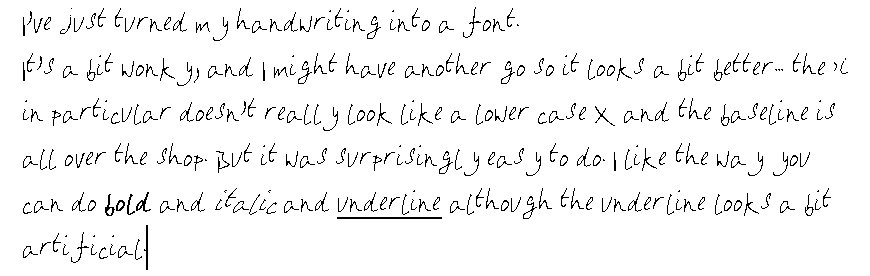 I've just turned my handwriting into a font.
It's a bit wonky, and I might have another go so it looks a bit better... the x
in particular doesn't really look like a lower case X and the baseline is
all over the shop. But it was surprisingly easy to do. I like the way you
can do bold and italic and underline although the underline looks a bit
artificial.